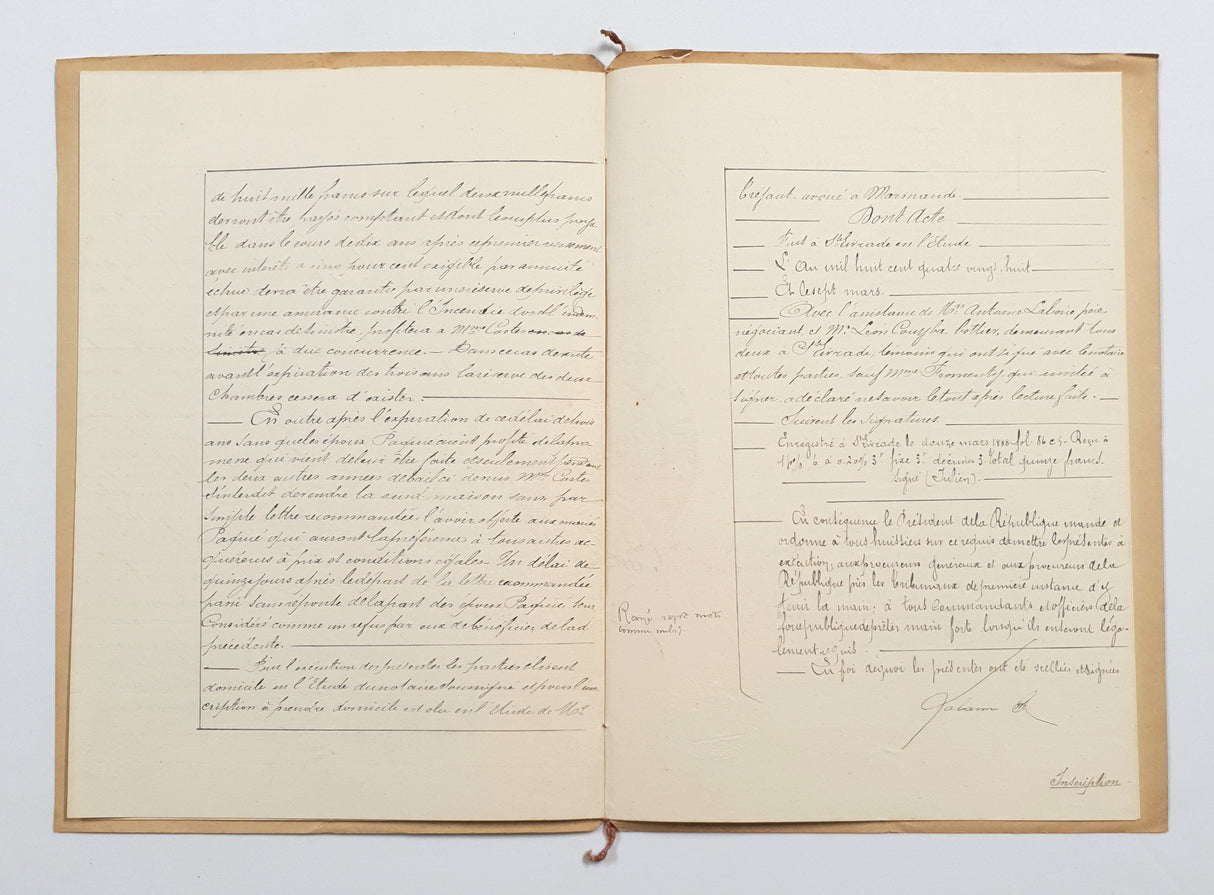 de huit mille francs sur lequel deux mille francs
devront être payés comptant et dont le surplus paya-
ble dans le cours de dix ans après ce premier versement
avec intérêt à cinq pour cent exigible par annuité
échue devra être garantie par une réserve de privilège
et par une assurance contre l'Incendie dont l'indem-
nité en cas de sinistre, profitera à Mme Costes en cas de
sinistre à due concurrence. — Dans ce cas de vente
avant l'expiration des trois ans la réserve des deux
Chambres cessera d'exister.
— En outre après l'expiration de ce délai de trois
ans sans que les époux Paquié aient profité de la pro
messe qui vient de leur être faite et seulement pendant
les deux autres années de bail ci dessus Mme Costes
s'interdit de vendre la susd. maison sans par
simple lettre recommandée, l'avoir offerte aux mariés
Paquié qui auront la préférence à tous autres ac-
quéreurs à prix et conditions égales. Un délai de
quinze jours après le départ de la lettre recommandée
passé sans réponse de la part des époux Paquié sera
Considéré comme un refus par eux de bénéficier de lad
précédente.
— Pour l'exécution des présentes les parties élisent
domicile en l'Etude du notaire soussigné et pour l'ins
cription à prendre domicile est élu en l'Etude de Me
avoué à Marmande.
Dont Acte
Fait à Ste Livrade en l'Etude
L'An mil huit cent quatre vingt-huit
Et le sept mars.
Avec l'assistance de Mrs Antoine père
négociant, et Mr Léon Couyba, bottier, demeurant tous
deux à Ste Livrade, témoins qui ont signé avec le notaire
et toutes parties, sauf Mme Fromenty, qui invitée à
signer, a déclaré ne savoir le tout après lecture faite. —
Suivent les signatures.
Enregistré à Ste Livrade le douze mars 1888 fol. 86 c 5. Reçu à
à 0.20% 3f fixe 3f décimes 3. total quinze francs.
Signé (Julien).
Rayé sept mots
comme nuls.
— En conséquence le Président de la République mande et
ordonne à tous huissiers sur ce requis de mettre les présentes à
exécution; aux procureurs généraux et aux procureurs de la
République près les Tribunaux de première instance d'y
tenir la main; à tous Commandants et officiers de la
force publique de prêter main forte lorsqu'ils en seront léga-
lement requis.
— En foi de quoi les présentes ont été scellées et signées
Inscription